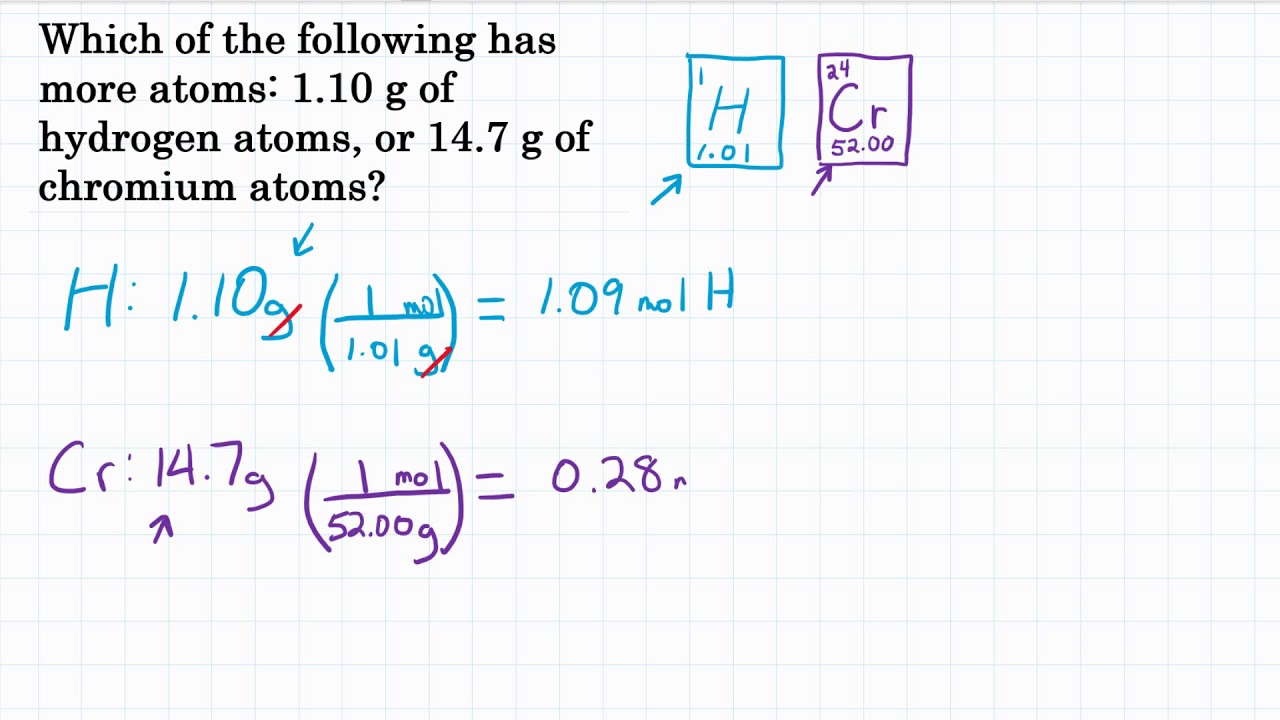 Which of the following has
more atoms: 1.10 g of
hydrogen atoms, or 14.7 g of
chromium atoms?
1
H
1.01
24
Cr
52.00
H: 1.10g (1 mol / 1.01 g) = 1.09 mol H
Cr: 14.7g (1 mol / 52.00g) = 0.28